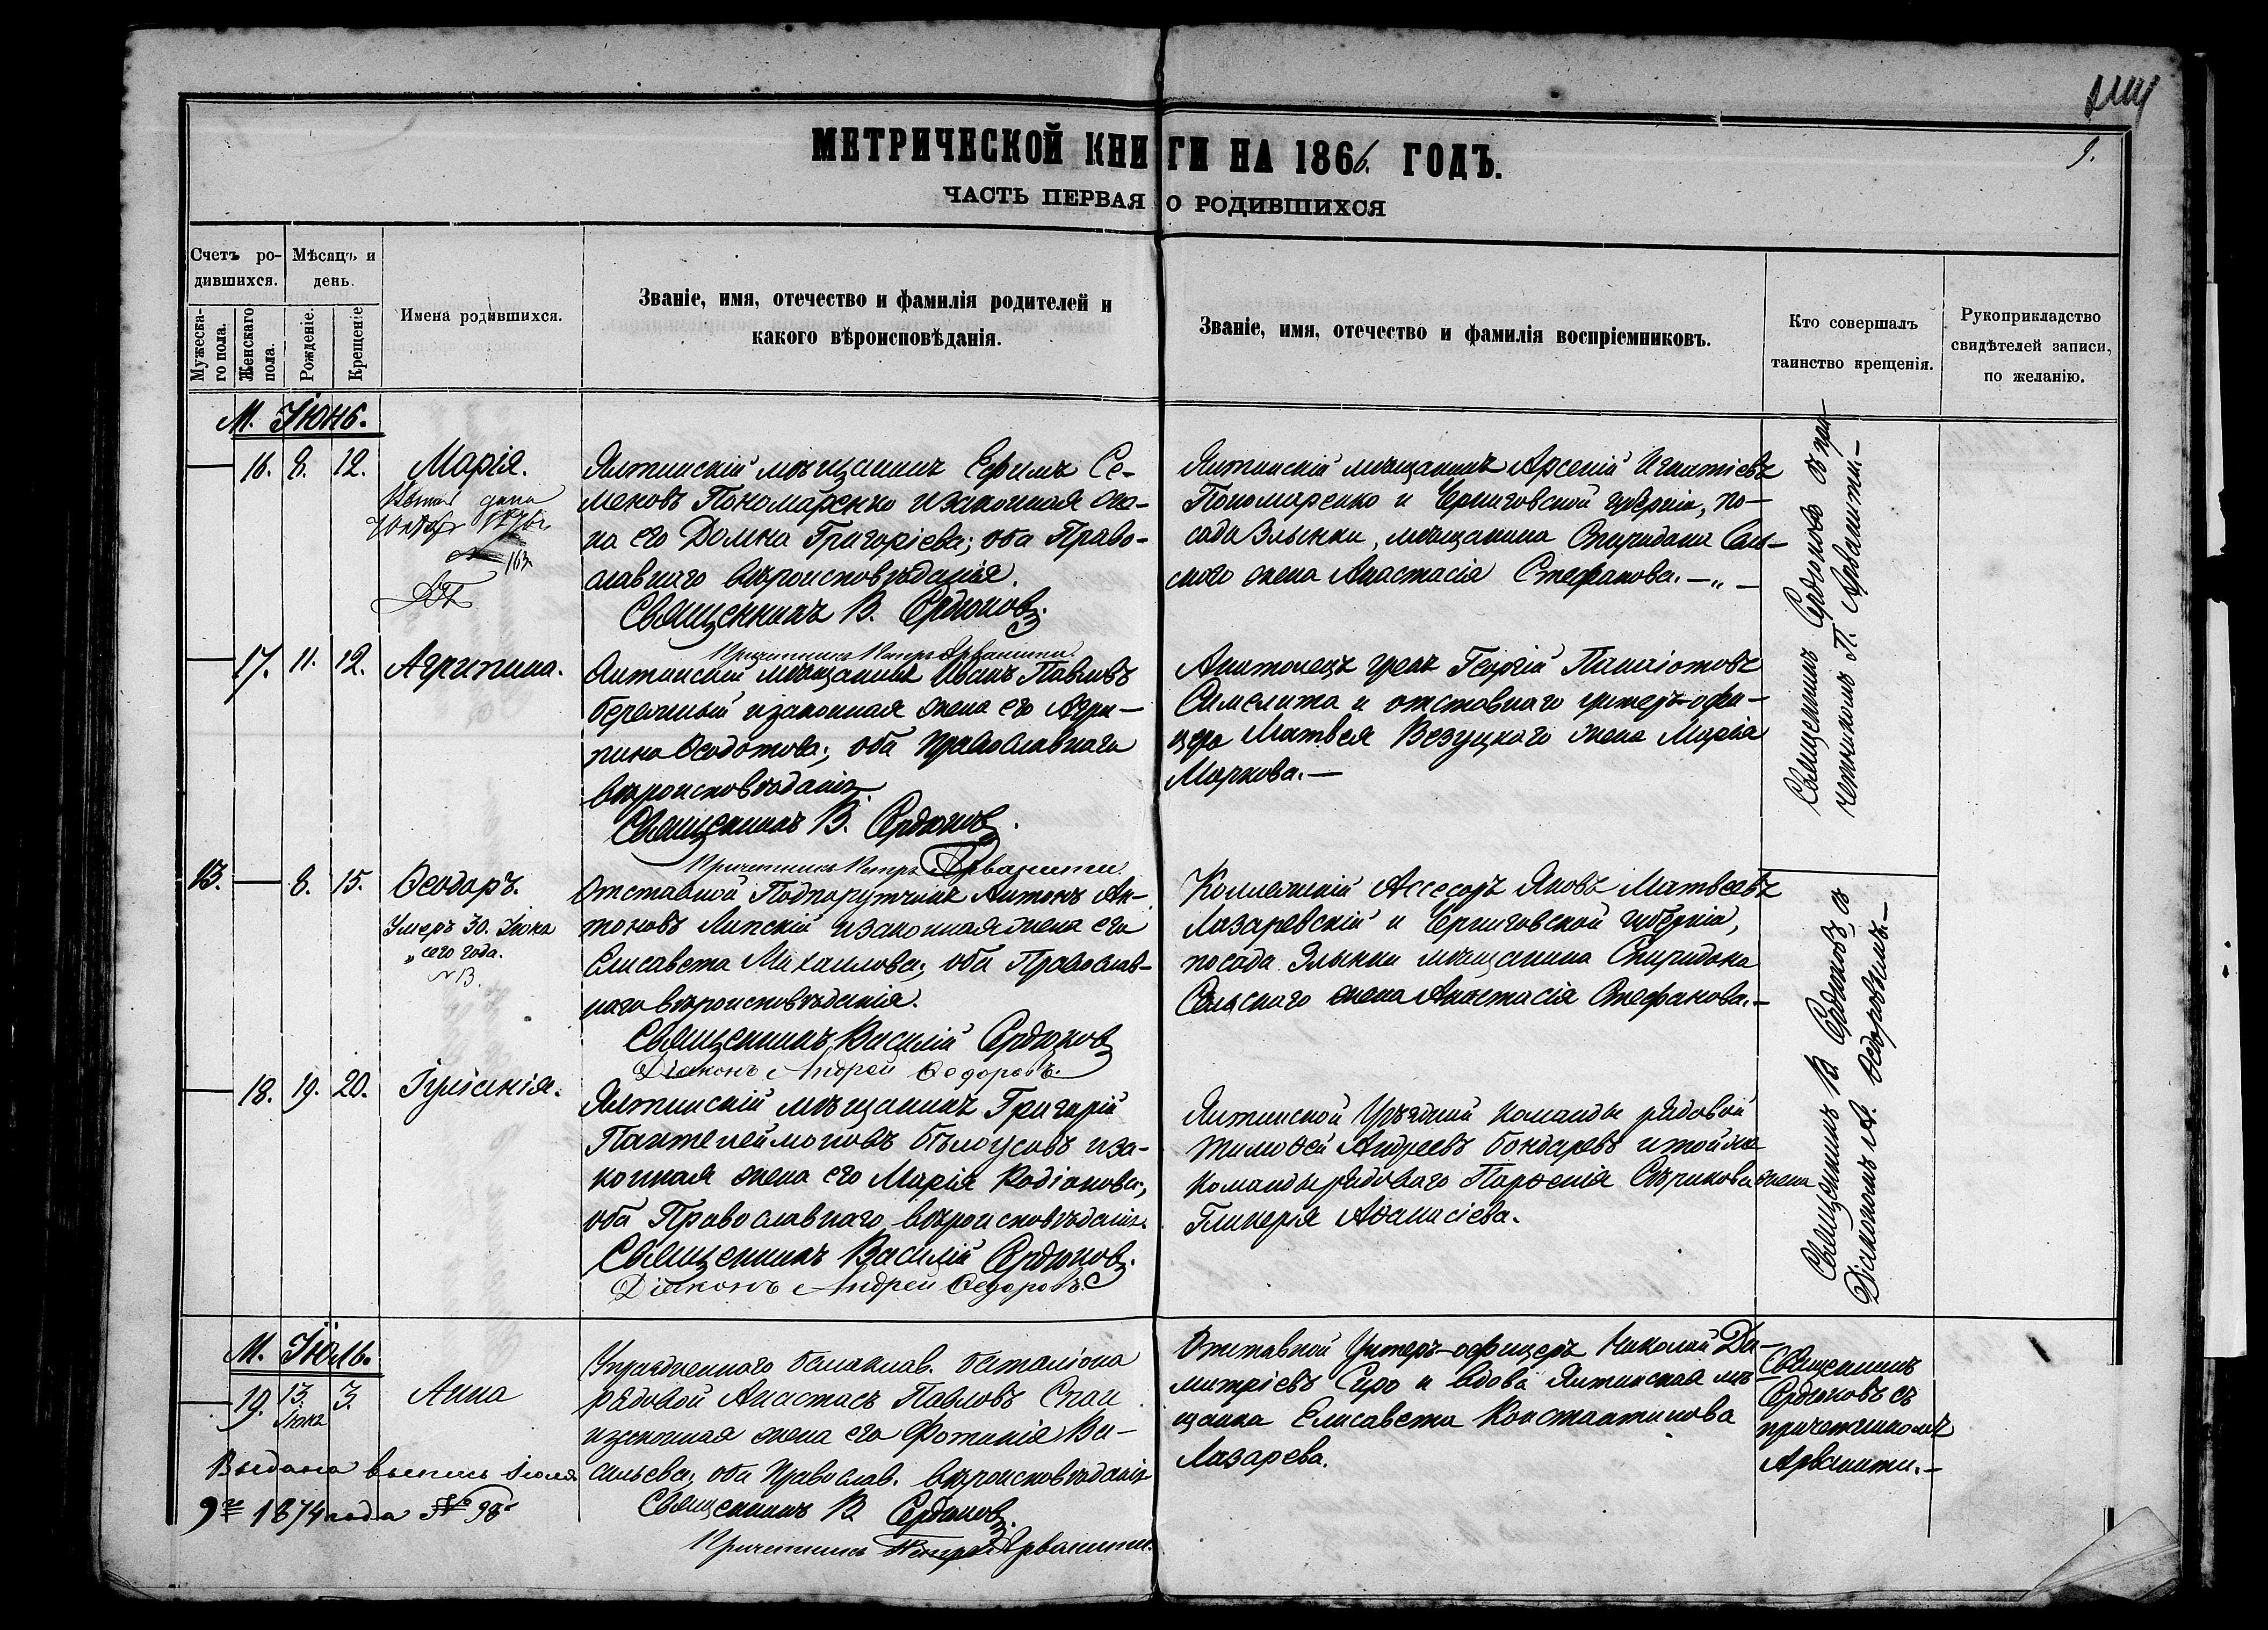 МЕТРИЧЕСКОЙ КНИГИ НА 1866. ГОДЪ.
9.
ЧАСТЬ ПЕРВАЯ О РОДИВШИХСЯ
Счетъ родившихся.
Мужескаго пола.
Женскаго пола.
Мѣсяцъ и день.
Рожденіе.
Крещеніе
Имена родившихся.
Званіе, имя, отечество и фамилія родителей и
какого вѣроисповѣданія.
Званіе, имя, отечество и фамилія воспріемниковъ.
Кто совершалъ
таинство крещенія.
Рукоприкладство
свидѣтелей записи,
по желанію.
М. Іюнь.
16. 8. 12. Марія.
Ялтинскій мѣщанинъ Ефимъ Се-
меновъ Пономаренко и законная же-
на его Домна Григоріева; оба Право-
славнаго вѣроисповѣданія.
Священникъ В. Сердюковъ.
Причетникъ Петръ Арванити.
Ялтинскій мѣщанинъ Арсеній Игнатіевъ
Пономаренко и Черниговской губерніи, по-
сада Злынки, мѣщанина Спиридона Сель-
скаго жена Анастасія Стефанова.
Священникъ Сердюковъ съ при-
четникомъ П. Арванити
17. 11. 12. Агрипина.
Ялтинскій мѣщанинъ Иванъ Павловъ
Бережный и законная жена его Агри-
пина Ѳеодотова; оба Православнаго
вѣроисповѣданія.
Священникъ В. Сердюковъ.
Причетникъ Петръ Арванити
Анатолецъ грекъ Георгій Панаіотовъ
Симелита и отставнаго унтеръ-офи-
цера Матвея Везуцкого жена Марія
Маркова.
13. 8. 15. Ѳеодоръ.
Умеръ 30. Іюня
сего года.
N 13.
Отставной Подпоручикъ Антонъ Ан-
тоновъ Липскій и законная жена его
Елисавета Михаилова; оба Православ-
наго вѣроисповѣданія.
Священникъ Василій Сердюковъ
Діаконъ Андрей Ѳедоровъ.
Коллежскій Ассесоръ Яковъ Матвеевъ
Лазаревскій и Черниговской губерніи,
посада Злынки мѣщанина Спиридона
Сельскаго жена Анастасія Стефанова.
Священникъ В. Сердюковъ съ
Діакономъ А. Ѳедоровымъ.
18. 19. 20.
Ялтинскій мѣщанинъ Григорій
Пантелеймоновъ Бѣлоусовъ и за-
конная жена его Марія Родіонова;
оба Православнаго вѣроисповѣданія.
Священникъ Василій Сердюковъ.
Діаконъ Андрей Ѳедоровъ.
Ялтинской Уѣздной команды рядовой
Тимоѳей Андреевъ Бондаревъ и той же
команды рядоваго Парѳенія жена
Гликерія Аѳанасіева.
М. Іюль.
19. 13. Іюня 3. Анна
Упраздненнаго балаклав. баталіона
рядовой Анастасъ Павловъ Спаи
и законная жена его Фотинія Ва-
сильева; оба Православ. вѣроисповѣданія
Священникъ В. Сердюковъ.
Причетникъ Петръ Арванити.
Отставной Унтеръ-офицеръ Николай Ди-
митріевъ Сиро и вдова Ялтинская мѣ-
щанка Елисавета Константинова
Лазарева.
Священникъ
Сердюковъ съ
причетникомъ
Арванити.
Выдана выпись Іюля
9го 1874 года № 98